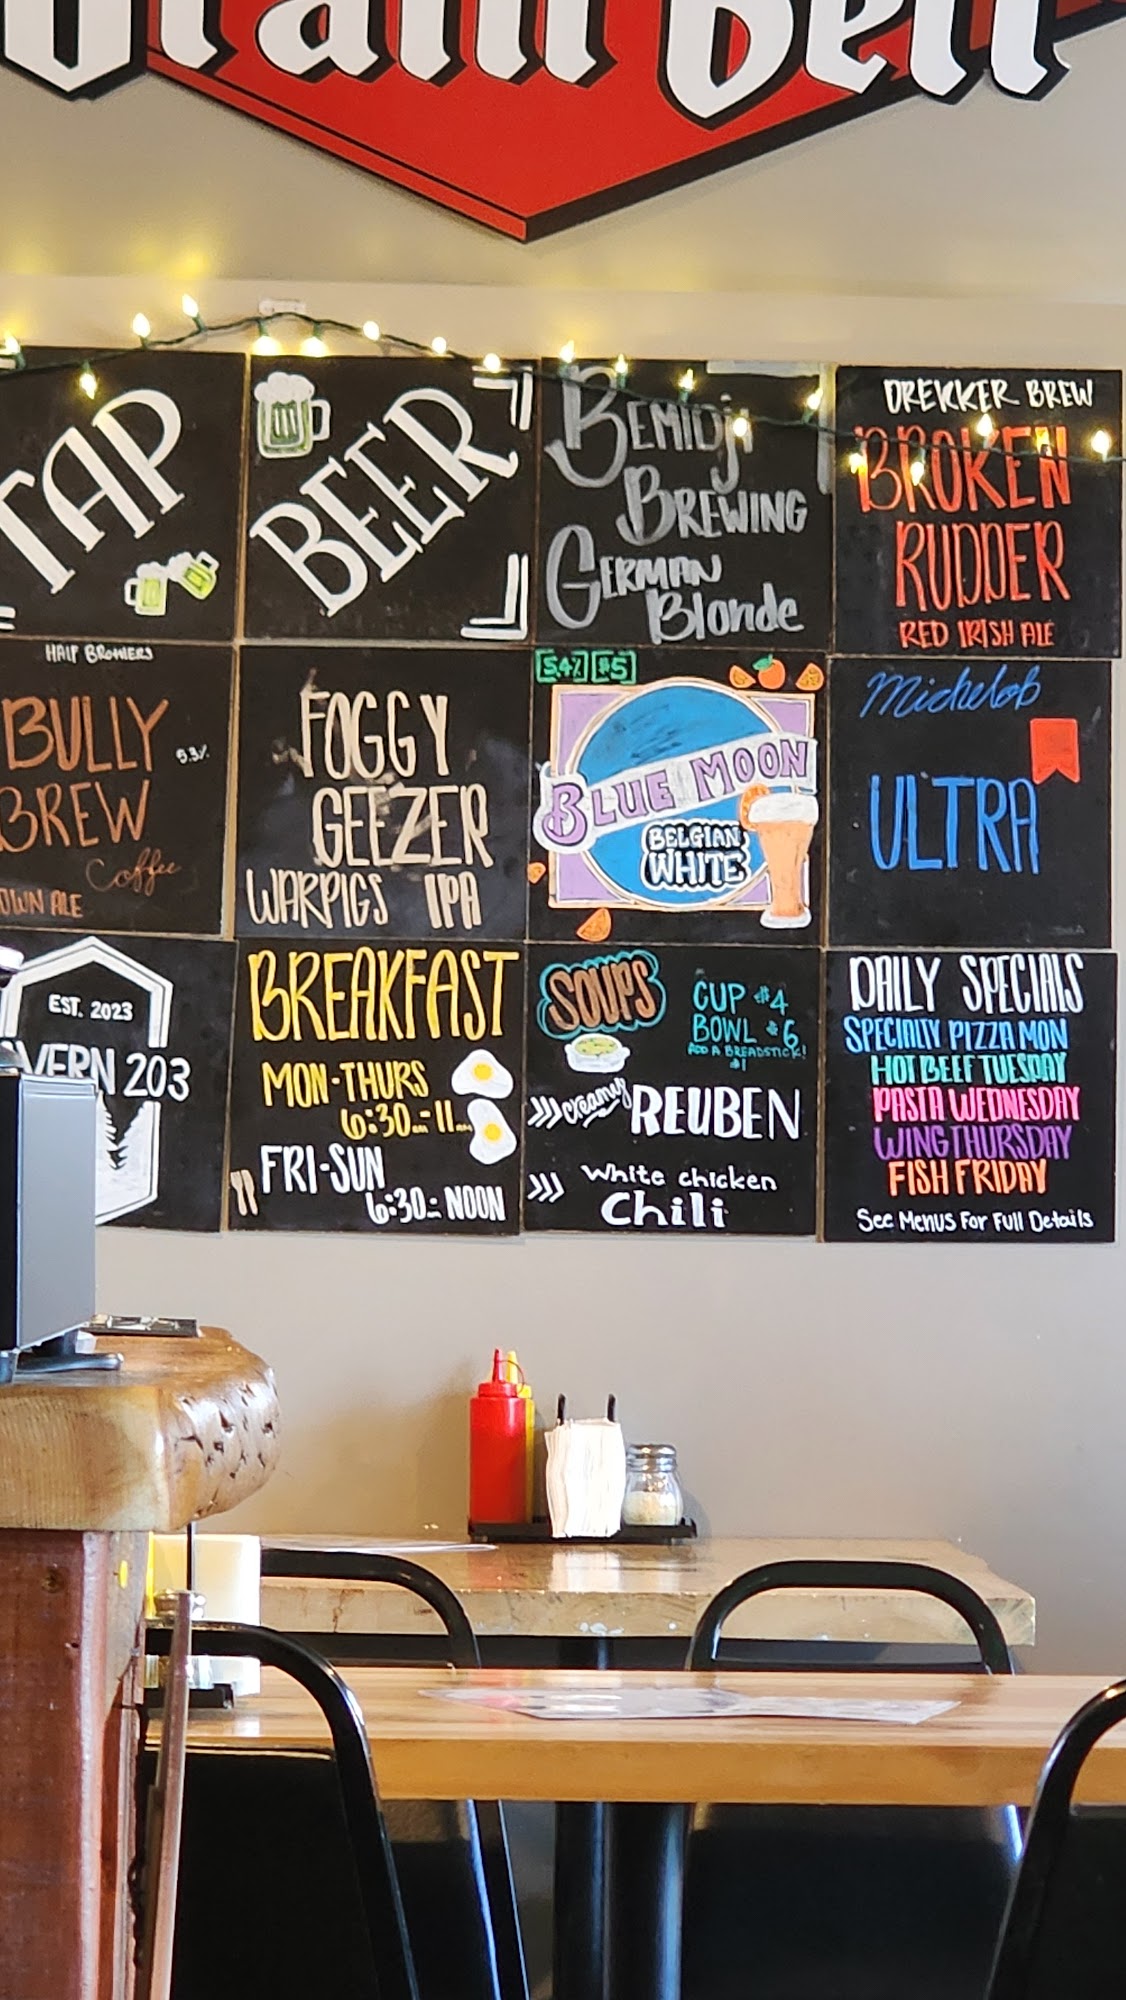 TAP
BEER
BEMIDji
BREWING
GERMAN
Blonde
DREKKER BREW
BROKEN
RUDDER
RED IRISH ALE
HALF BROTHERS
BULLY
5.3%
BREW
Coffee
OWN ALE
FOGGY
GEEZER
WARPIGS IPA
5.4% $5
BLUE MOON
BELGIAN
WHITE
Michelob
ULTRA
EST. 2023
VERN 203
BREAKFAST
MON-THURS
6:30am-11am
FRI-SUN
6:30am- NOON
SOUPS
CUP $4
BOWL $6
ADD A BREADSTICK!
$1
creamy REUBEN
White chicken
Chili
DAILY SPECIALS
SPECIALTY PIZZA MON
HOT BEEF TUESDAY
PASTA WEDNESDAY
WING THURSDAY
FISH FRIDAY
See Menus For Full Details